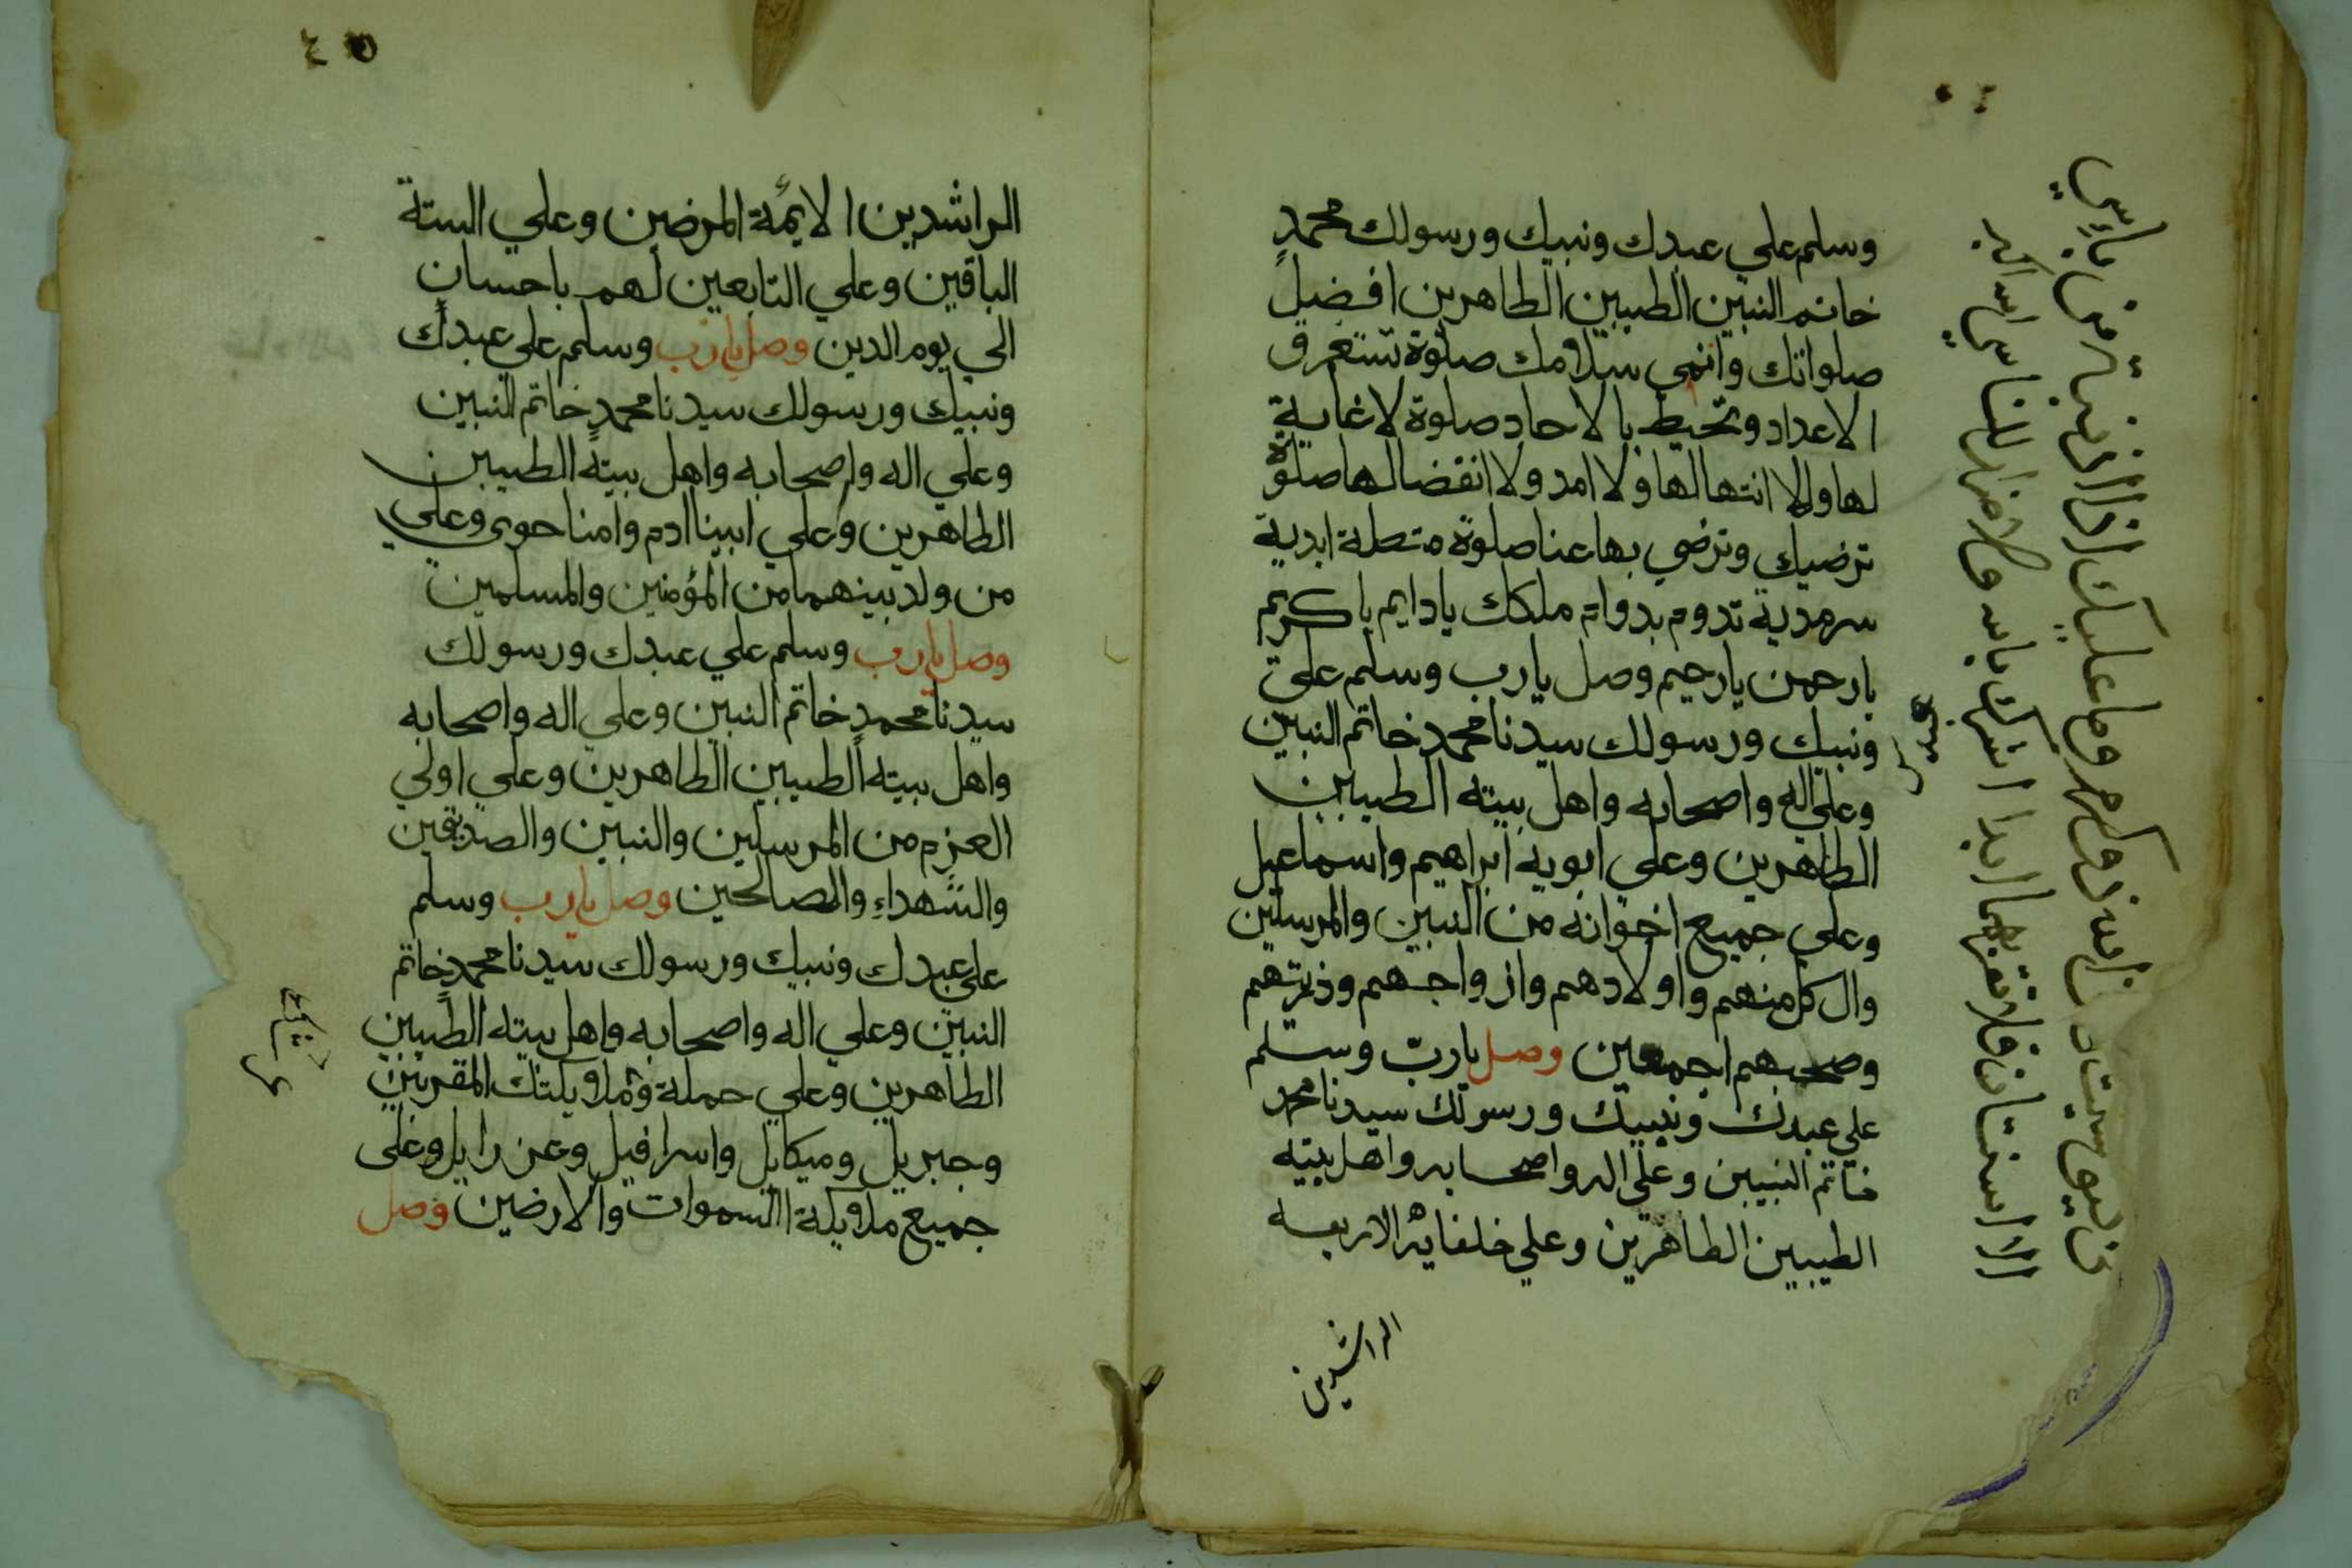 وسلم علي عبدك ونبيك ورسولك محمدٍ
خاتم النبين الطيبين الطاهرين افضل
صلواتك وانمي سلامك صلوة تستغرق
الاعداد وتحيط بالاحاد صلوة لا غاية
لها ولا انتها لها ولا امد ولا انقضا لها صلوة
ترضيك وترضي بها عنا صلوة متصلة ابدية
سرمدية تدوم بدوام ملكك يادايم ياكريم
يارحمن يارحيم وصل يارب وسلم علي
عبدك
ونبيك ورسولك سيدنا محمد خاتم النبين
وعلي اله واصحابه واهل بيته الطيبين
الطاهرين وعلي ابويه ابراهيم واسماعيل
وعلي جميع اخوانه من النبين والمرسلين
وال كل منهم واولادهم وازواجهم وذريتهم
وصحبهم اجمعين وصل يارب وسلم
علي عبدك ونبيك ورسولك سيدنا محمد
خاتم النبيين وعلي اله واصحابه واهل بيته
الطيبين الطاهرين وعلي خلفائه الاربعه
الراشدين
٤٥
الراشدين الايمة المرضين وعلي الستة
الباقين وعلي التابعين لهم باحسانٍ
الي يوم الدين وصل يارب وسلم علي عبدك
ونبيك ورسولك سيدنا محمدٍ خاتم النبين
وعلي اله واصحابه واهل بيته الطيبين
الطاهرين وعلي ابينا ادم وامنا حوى وعلي
من ولد بينهما من المؤمنين والمسلمين
وصل يارب وسلم علي عبدك ورسولك
سيدنا محمدٍ خاتم النبين وعلي اله واصحابه
واهل بيته الطيبين الطاهرين وعلي اولي
العزم من المرسلين والنبين والصديقين
والشهداءِ والصالحين وصل يارب وسلم
علي عبدك ونبيك ورسولك سيدنا محمدٍ خاتم
النبين وعلي اله واصحابه واهل بيته الطيبين
الطاهرين وعلي حملة وملايكتك المقربين
وجبريل وميكايل واسرافيل وعزرايل وعلى
جميع ملايكة السموات والارضين وصل